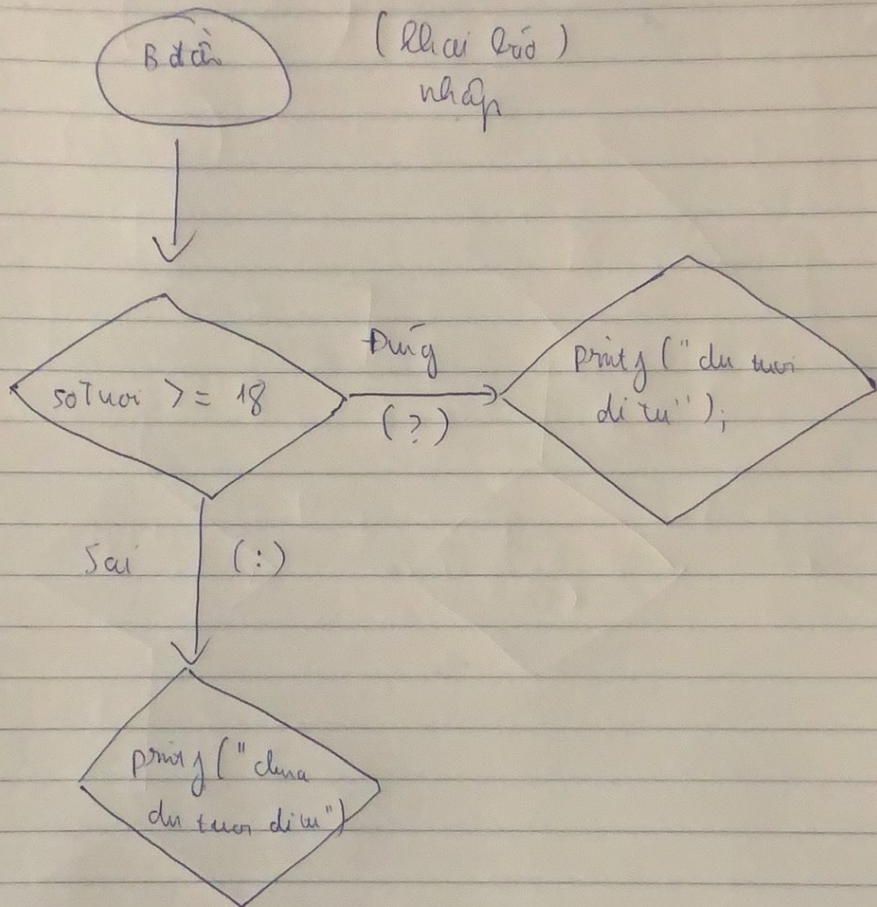 B đầu
(khai báo)
nhập
soTuoi >= 18
Đúng
(?)
printf ("du tuoi
di tu");
Sai
(:)
printf ("chua
du tuoi di tu")